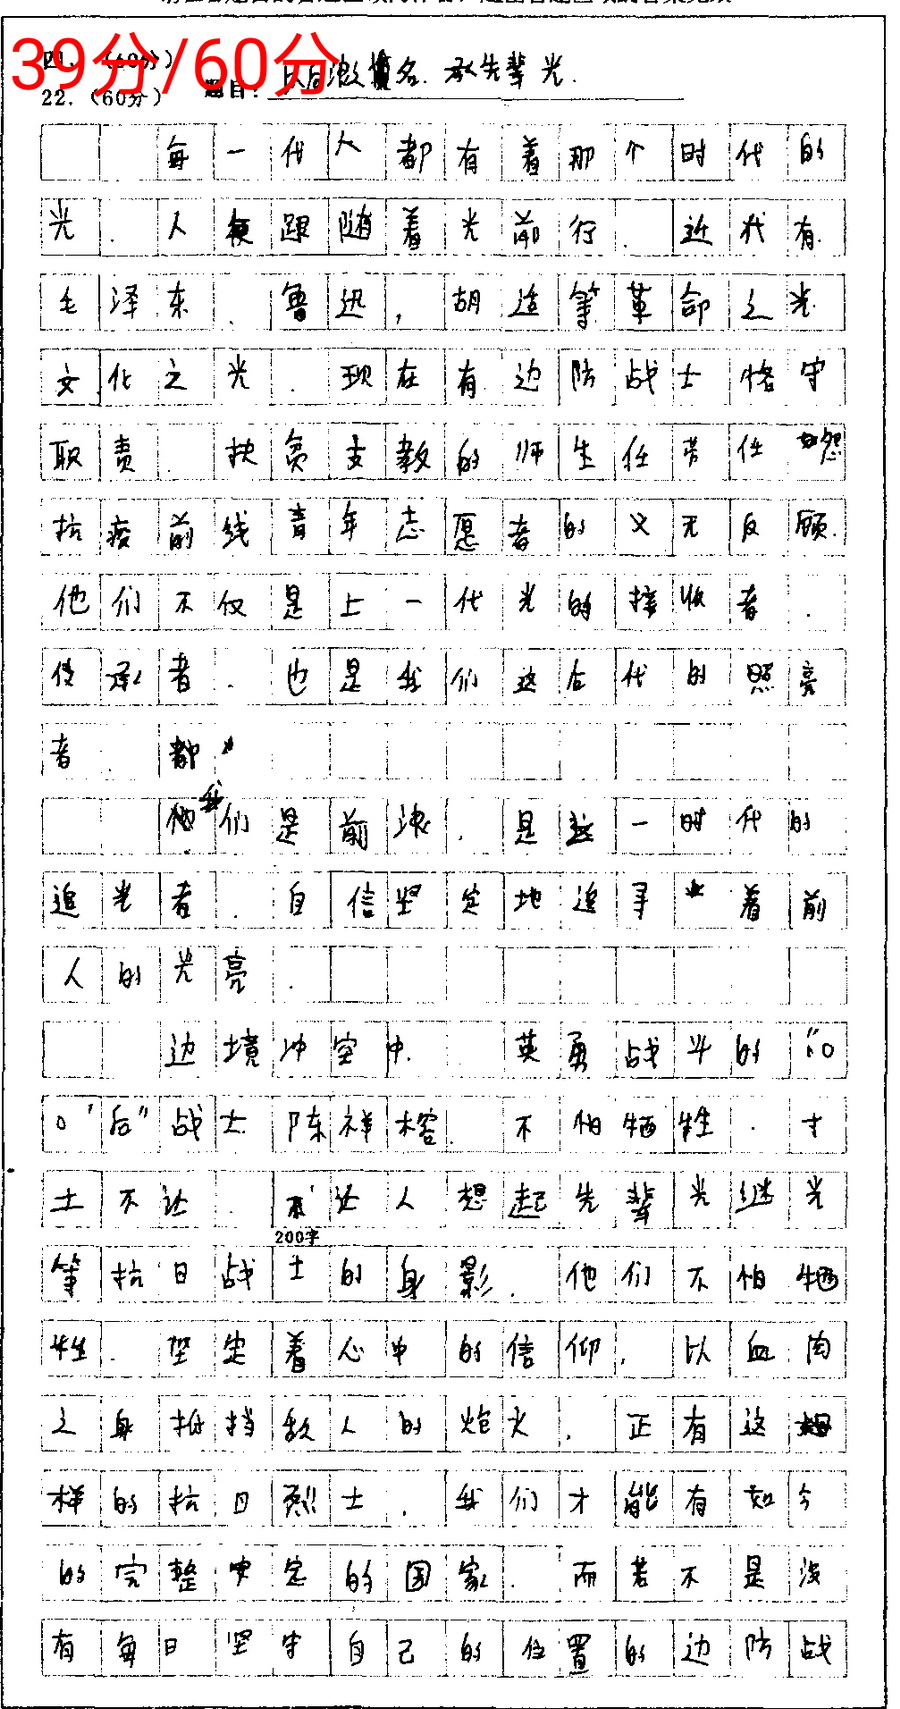 39分/60分
四、（60分）
22.（60分） 题目：以后浪名.承先辈光.
每一代人都有着那个时代的
光.人便跟随着光前行.近代有
毛泽东.鲁迅,胡适等革命之光
文化之光.现在有边防战士恪守
职责.扶贫支教的师生任劳任怨
抗疫前线青年志愿者的义无反顾.
他们不仅是上一代光的接收者.
传承者.也是我们这后代的照亮
者.都
我们是前浪.是这一时代的
追光者.自信坚定地追寻着前
人的光亮.
边境冲突中.英勇战斗的“00
0'后”战士陈祥榕.不怕牺牲.寸
土不让.让人想起先辈光继光
等抗日战士的身影.他们不怕牺
牲.坚定着心中的信仰.以血肉
之身抵挡敌人的炮火.正有这
样的抗日烈士.我们才能有如今
的完整安定的国家.而若不是没
有每日坚守自己的位置的边防战
200字